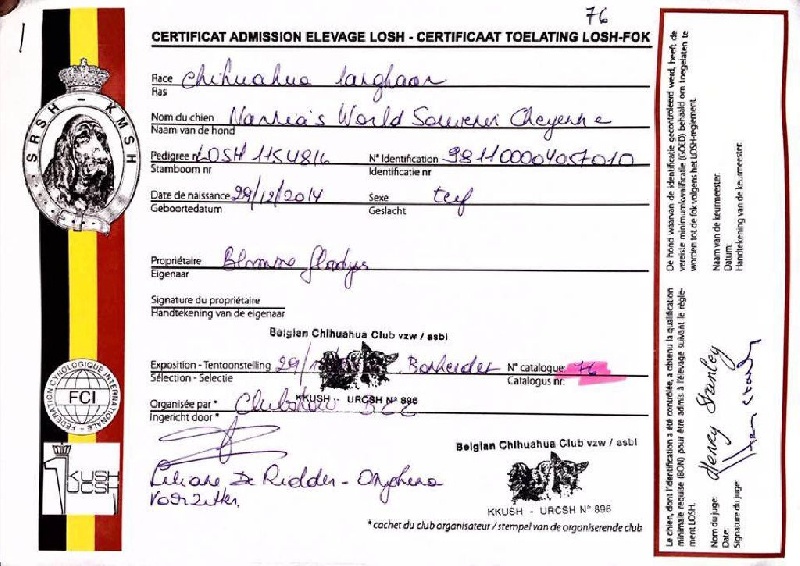 76
CERTIFICAT ADMISSION ELEVAGE LOSH - CERTIFICAAT TOELATING LOSH-FOK
Race Chihuahua langhaar
Ras
Nom du chien World Souverei Cheyenne
Naam van de hond
Pedigree nr LOSH 1154816 N° Identification 981100004057010
Stamboom nr Identificatie nr
Date de naissance 29/12/2014 Sexe teef
Geboortedatum Geslacht
Propriétaire Blomme Gladys
Eigenaar
Signature du propriétaire
Handtekening van de eigenaar
Belgian Chihuahua Club vzw / asbl
Exposition - Tentoonstelling 29/ N° catalogue 76
Sélection - Selectie Catalogus nr.
KKUSH - URCSH N° 896
Organisée par * Clubshow BCC
Ingericht door *
Liliane De Ridder - Onghena
Voorzitter
Belgian Chihuahua Club vzw / asbl
KKUSH - URCSH N° 896
* cachet du club organisateur / stempel van de organiserende club
SRSH - KMSH
FEDERATION CYNOLOGIQUE INTERNATIONALE
FCI
KUSH
UCSH
Le chien, dont l'identification a été contrôlée, a obtenu la qualification
minimale requise (BON) pour être admis à l'élevage suivant le règle-
ment LOSH.
Nom du juge: Henry Stanley
Date:
Signature du juge:
De hond waarvan de identificatie gecontroleerd werd, heeft de
vereiste minimumkwalificatie (GOED) behaald om toegelaten te
worden tot de fok volgens het LOSH-reglement.
Naam van de keurmeester:
Datum:
Handtekening van de keurmeester: